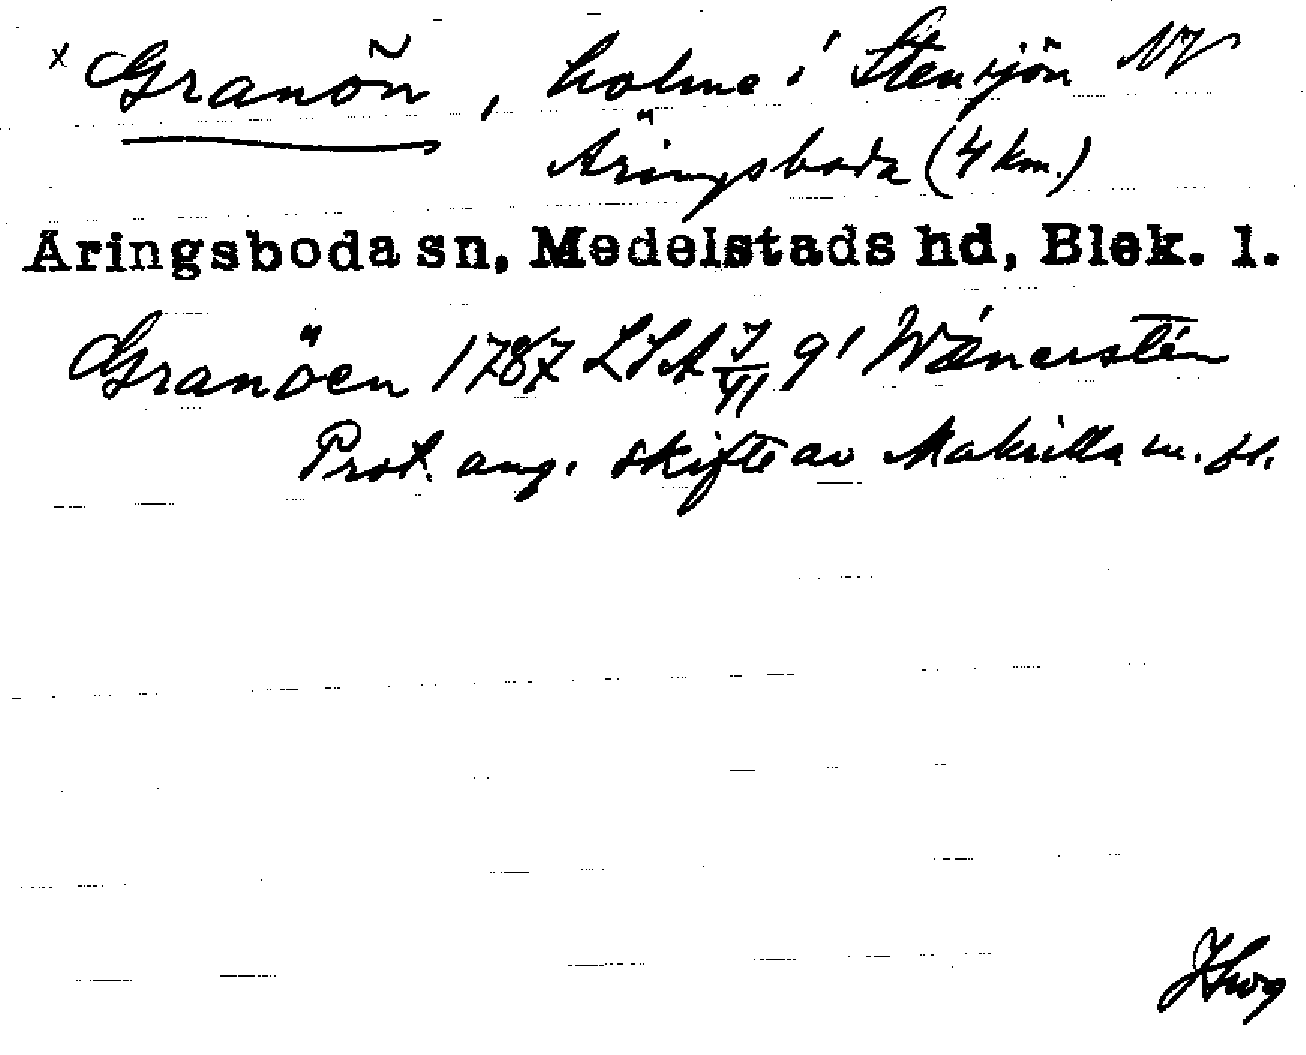 x Granön, holme i Stensjön NV
Äringsboda (4 km.)
Äringsboda sn, Medelstads hd, Blek. l.
Granöen 1787 LSA
Prot. ang. skifte av Makrilla m. fl.